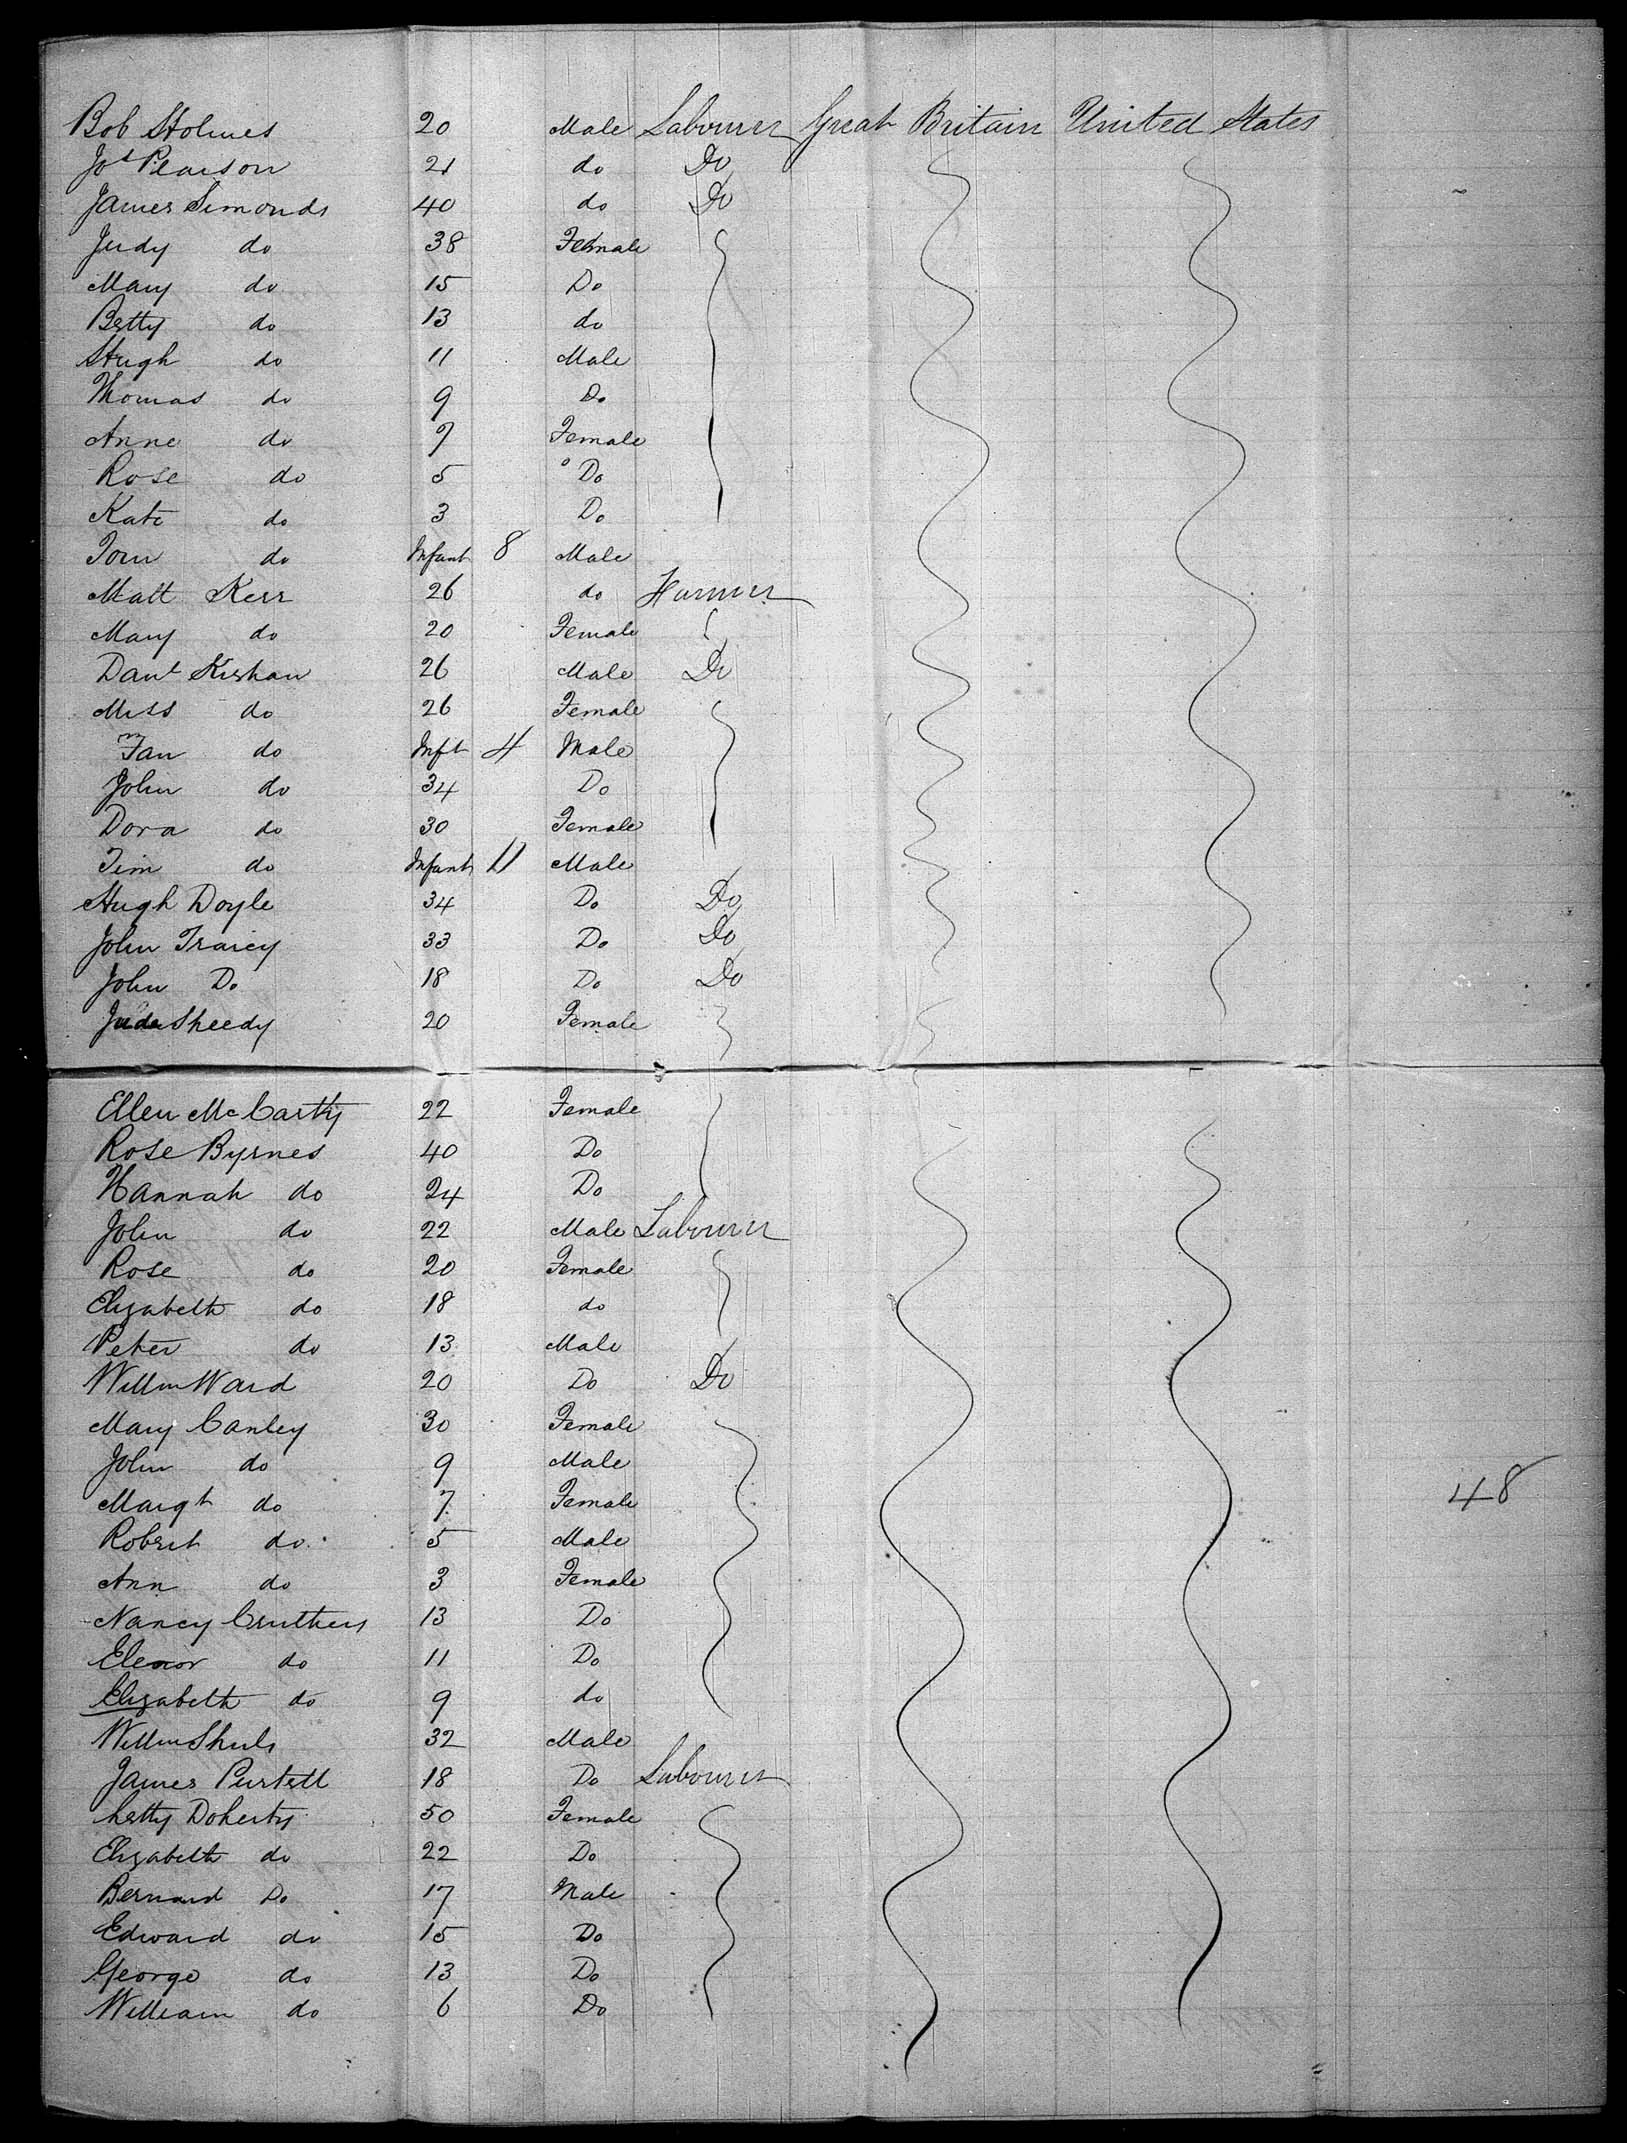 Bob Holmes 20 Male Labourer Great Britain United States
Jos Pearson 21 do Do
James Simonds 40 do Do
Judy do 38 Female
Mary do 15 Do
Betty do 13 do
Hugh do 11 Male
Thomas do 9 Do
Anne do 7 Female
Rose do 5 Do
Kate do 3 Do
Tom do Infant 8 Male
Matt Kerr 26 do Farmer
Mary do 20 Female
Danl 26 Male Do
Miss do 26 Female
do Inft 4 Male
John do 34 Do
Dora do 30 Female
Tim do Infant 11 Male
Hugh Doyle 34 Do Do
John Traicy 33 Do Do
John Do 18 Do Do
Sheedy 20 Female
Ellen McCarthy 22 Female
Rose Byrnes 40 Do
Hannah do 24 Do
John do 22 Male Labourer
Rose do 20 Female
Elizabeth do 18 do
Peter do 13 Male
Willm Ward 20 Do Do
Mary Canley 30 Female
John do 9 Male
Margt do 7 Female
48
Robert do 5 Male
Ann do 3 Female
Nancy Cruthers 13 Do
Elenor do 11 Do
Elizabeth do 9 do
Willm 32 Male
James Purtell 18 Do Labourer
Doherty 50 Female
Elizabeth do 22 Do
Bernard Do 17 Male
Edward do 15 Do
George do 13 Do
William do 6 Do